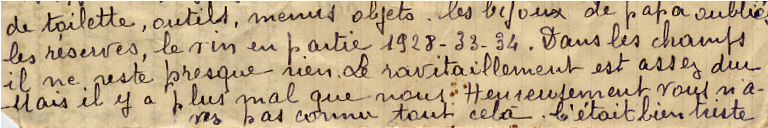 de toilette, outils, menus objets. les bijoux de papa oubliés
les réserves, le vin en partie 1928-33-34. Dans les champs
il ne reste presque rien. Le ravitaillement est assez dur
Mais il y a plus mal que nous. Heureusement vous n'a-
vez pas connu tout celà. C'était bien triste